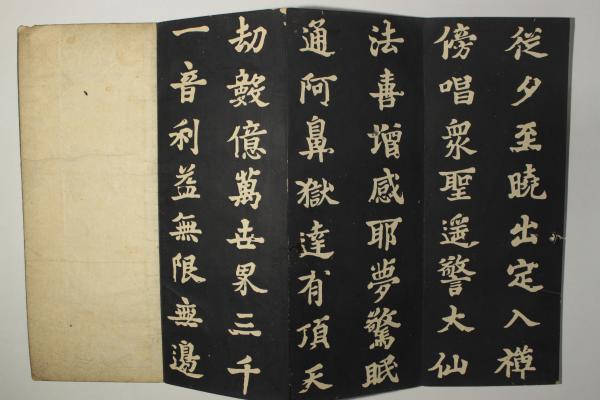 従夕至曉出定入禅
傍唱衆聖遥警大仙
法喜増感耶夢驚眠
通阿鼻獄達有頂天
劫數億萬世界三千
一音利益無限無邊